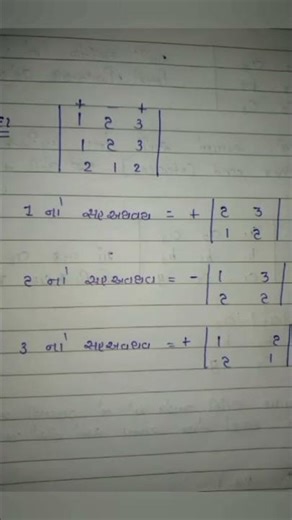 + − +
| 1 ૨ 3 |
| 1 ૨ 3 |
| 2 1 2 |
1 નો સહઅવયવ = + | ૨ 3 |
| 1 ૨ |
૨ નો સહઅવયવ = - | 1 3 |
| ૨ ૨ |
3 નો સહઅવયવ = + | 1 ૨ |
| ૨ 1 |